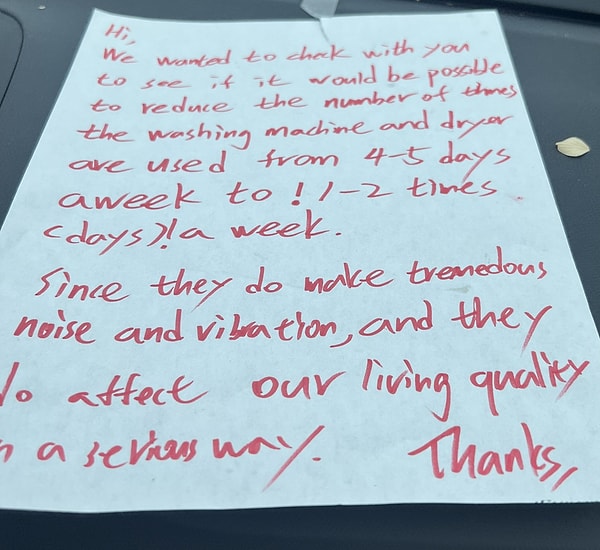 Hi,
We wanted to check with you
to see if it would be possible
to reduce the number of times
the washing machine and dryer
are used from 4-5 days
aweek to ! 1-2 times
(days)! a week.
Since they do make tremedous
noise and vibration, and they
do affect our living quality
in a serious way. Thanks,